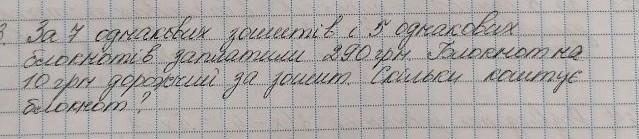 3. За 7 однакових зошитів і 5 однакових
блокнотів заплатили 290 грн. Блокнот на
10 грн дорожчий за зошит. Скільки коштує
блокнот?